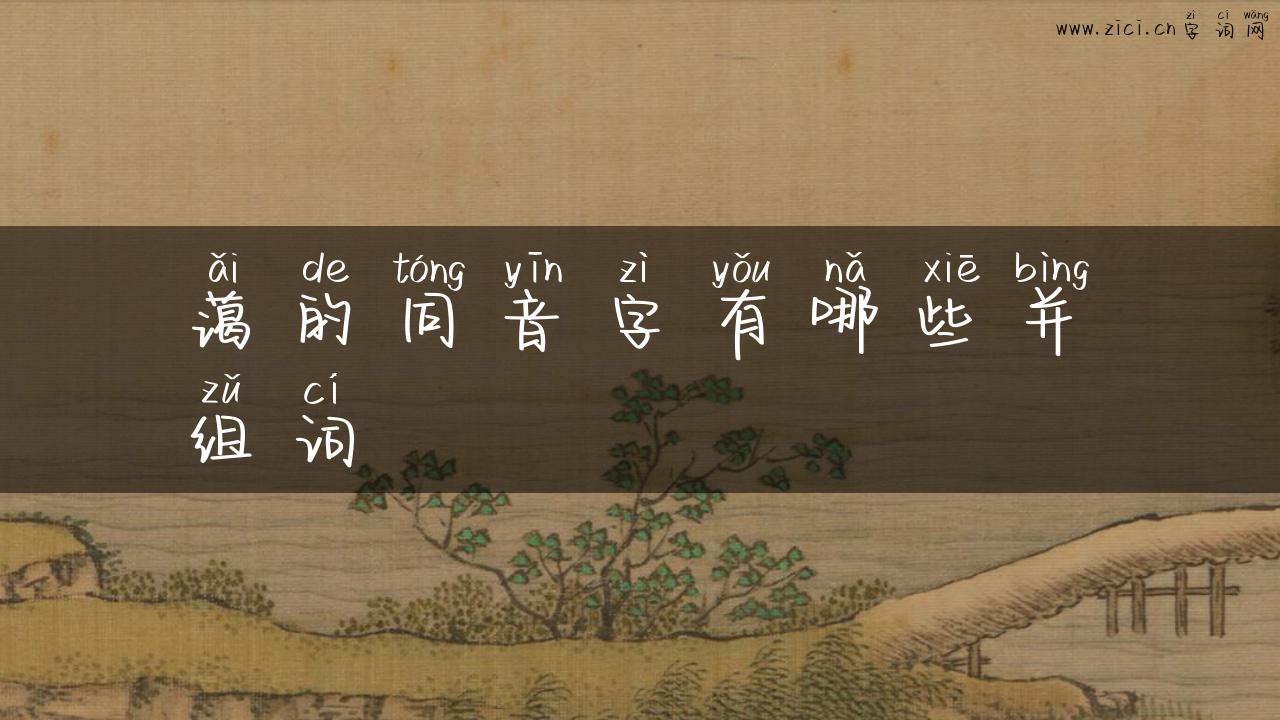 zì cí wǎng
www.zici.cn 字词网
ǎi de tóng yīn zì yǒu nǎ xiē bìng
蔼的同音字有哪些并
zǔ cí
组词